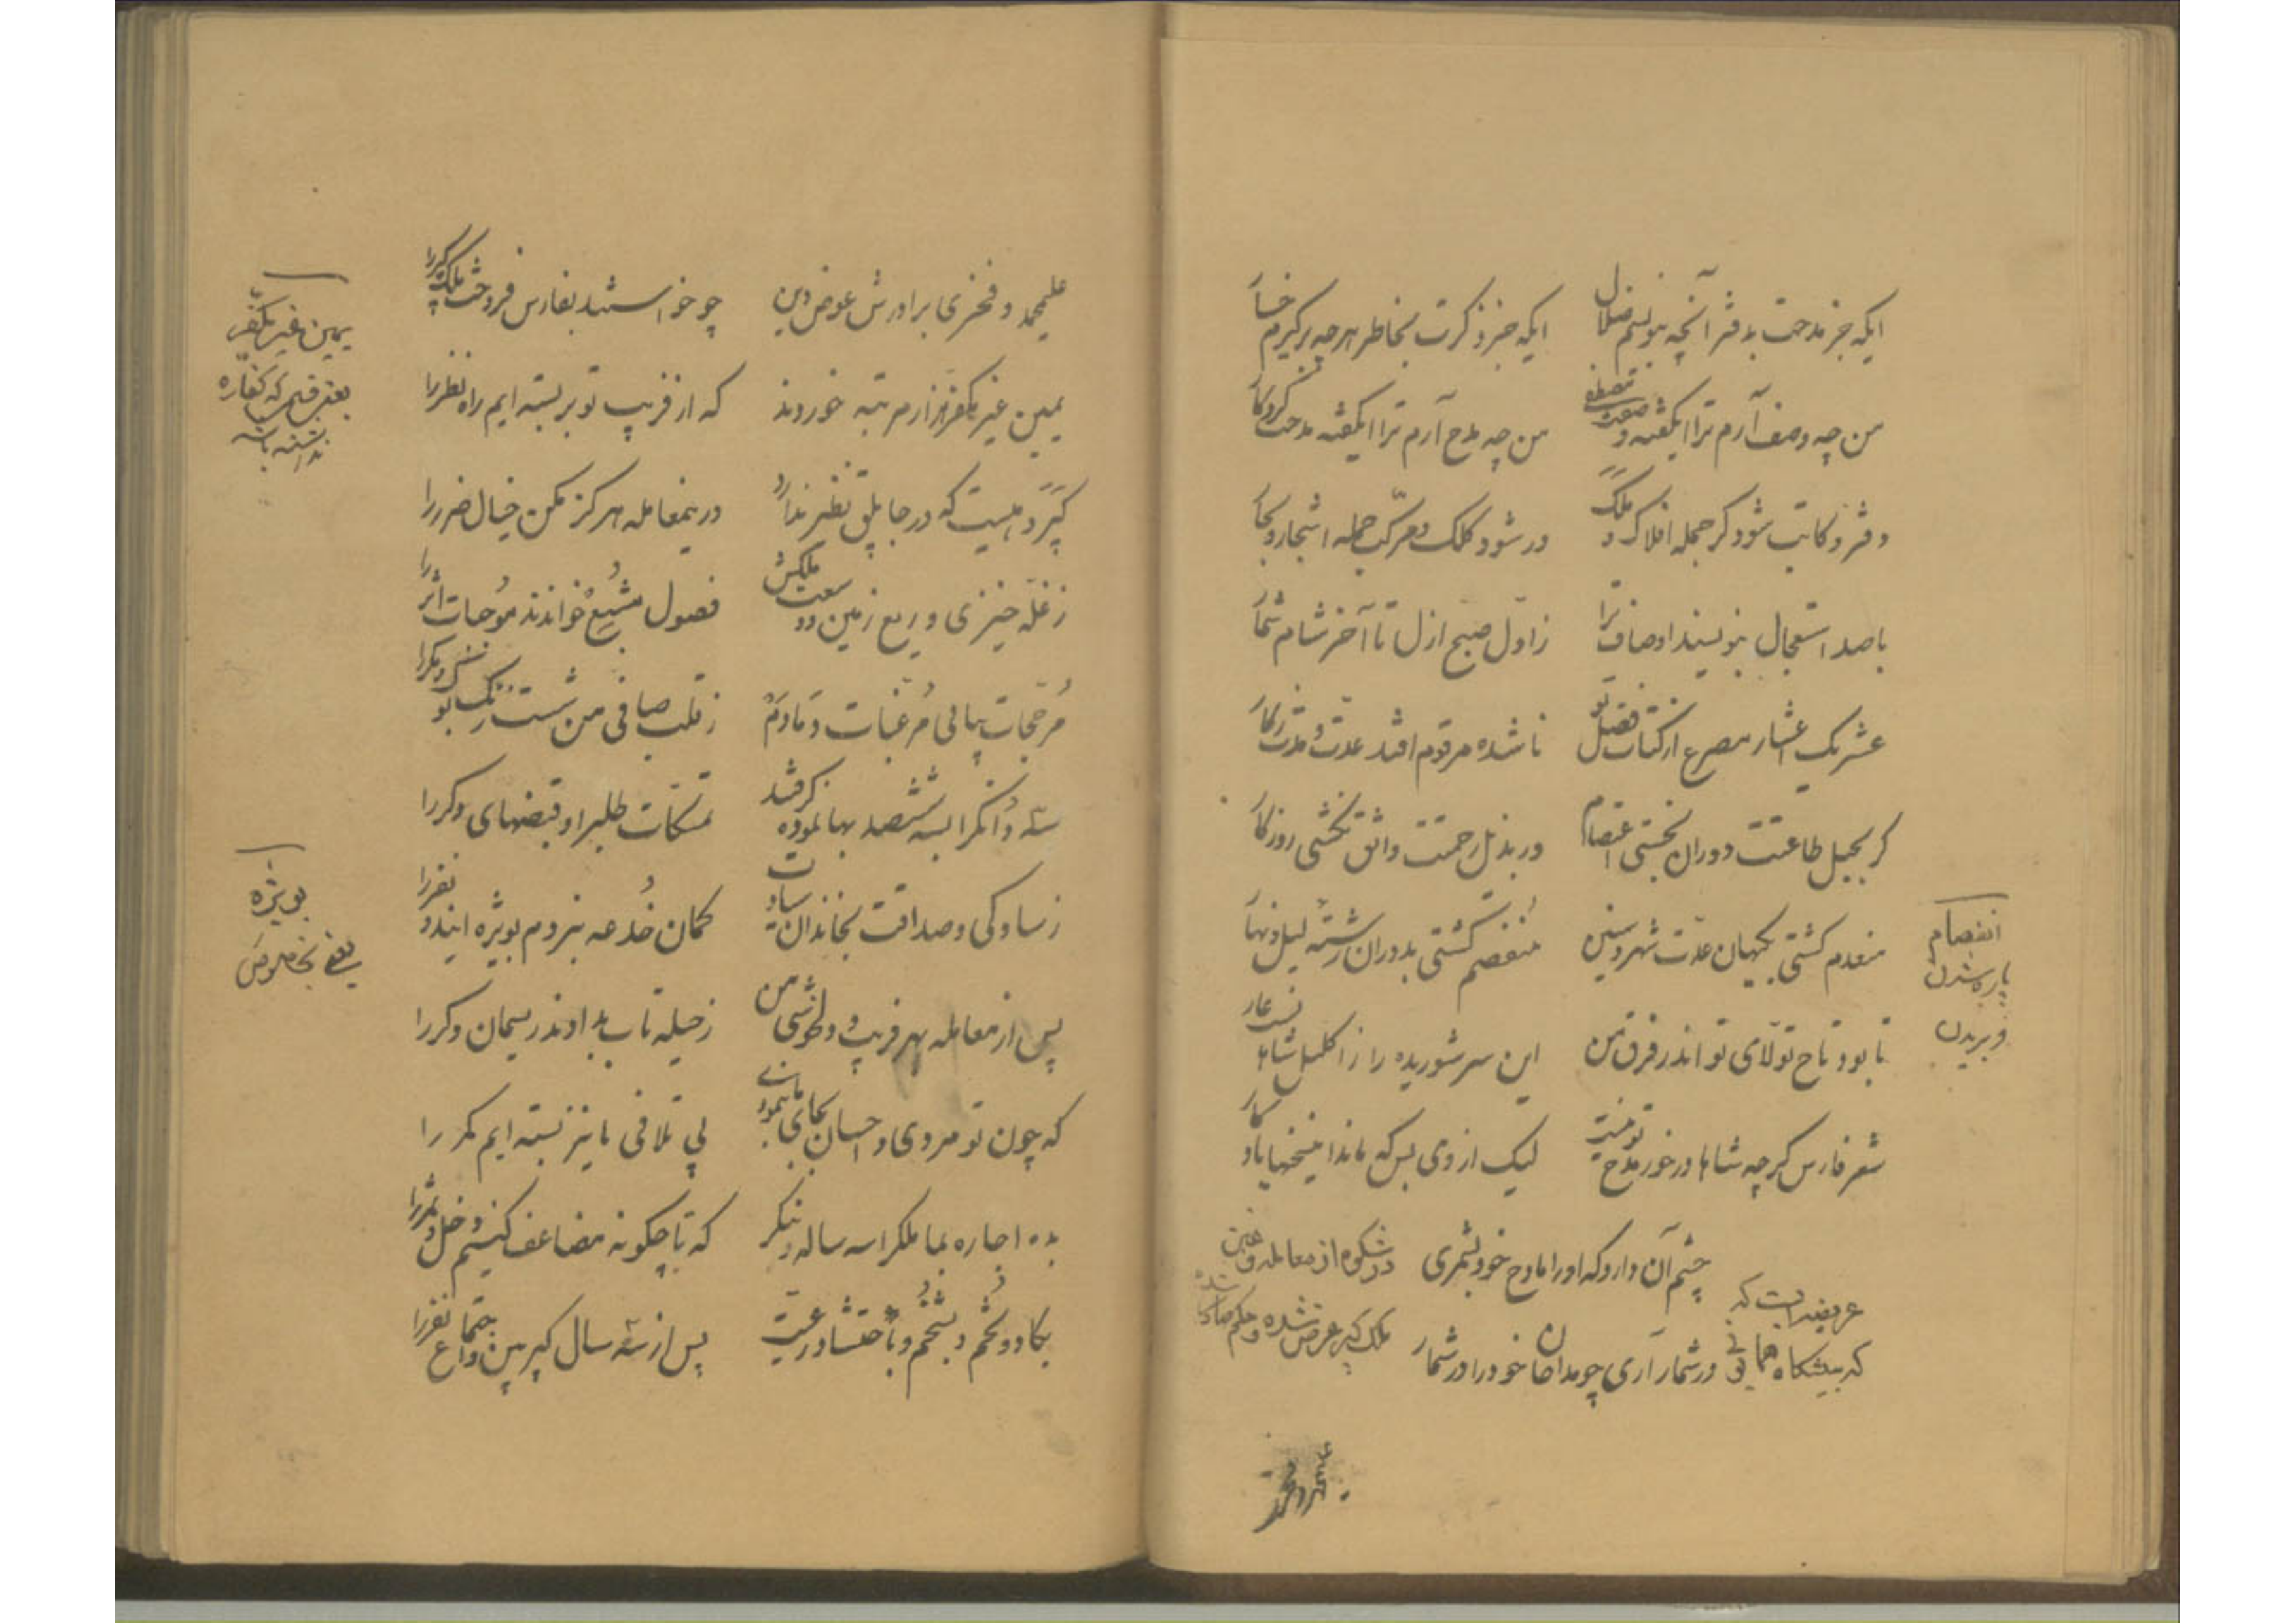 ایکه جز مدحت بدفتر آنچه بنویسم ضلال ایکه جز ذکرت بخاطر هرچه برگیرم خسار
من چه وصف آرم ترا ایگفته وصفت مصطفی من چه مدح آرم ترا ایگفته مدحت کردگار
دفتر و کاتب شود گر جمله افلاک و ملک ور شود کلک و مرکّب جمله اشجار و بحار
باصد استعجال بنویسند اوصاف ترا ز اوّل صبح ازل تا آخر شام شمار
عشر یک اعشار مصرع از کتاب فضل تو ناشده مرقوم افتد عدّت و مدّت ز کار
گر بحبل طاعتت دوران نجستی اعتصام ور بذیل رحمتت واثق نگشتی روزگار
منعدم گشتی بکیهان عدّت شهر و سنین منفصم گشتی بدوران رشته لیل و نهار
انفصام
پاره شدن
و بریدن
تا بود تاج تولّای تو اندر فرق من این سر شوریده را ز اکلیل شاهان عار
شعر فارس گرچه شاها درخور مدح تو نیست لیک از وی بس که ماند این سخنها یادگار
چشم آن دارد که او را مادح خود بشمری
در شمار آری چو مداحان خود را در شمار
عریضه ایست که
که بپیشگاه همایونی
در شکوه از معامله و غبن
ملک کپر عرض شده و حکم صادر شد
علیمحمد و فخری برادرش عوض دین چو خواستند بفارس فروخت ملک کپر را
یمین غیر مکفّر هزار مرتبه خوردند که از فریب تو بربسته ایم راه نظر را
یمین غیر مکفّر
یعنی قسمی که کفّاره
نداشته باشد
کپر دهیست که در جابلق نظیر ندارد درینمعامله هرگز مکن خیال ضرر را
ز غلّه خیزی و ریع زمین و سعت ملکش فصول مشبع خواندند موحات اثر را
مرجّحات پیاپی مرغّبات دمادم ز قلب صافی من شست زنگ بوک و مگر را
سه دانگرا بسه ششصد بها نموده گرفتند تمسّکات طلب را و قبضهای دگر را
ز سادگی و صداقت بخاندان سیادت گمان خدعه نبردم بویژه ایندو نفر را
بویژه
یعنی بخصوص
پس از معامله بهر فریب و دلخوشی من ز حیله تاب بدادند ریسمان دگر را
که چون تو مردی و احسان بجای ما بنمودی پی تلافی ما نیز بسته ایم کمر را
بده اجاره بما ملکرا سه ساله و بنگر که تا چگونه مضاعف کنیم دخل و ثمر را
بگاو و تخم و بشخم و باحتشاد رعیّت پس از سه سال کپر بین و اجتماع نفر را